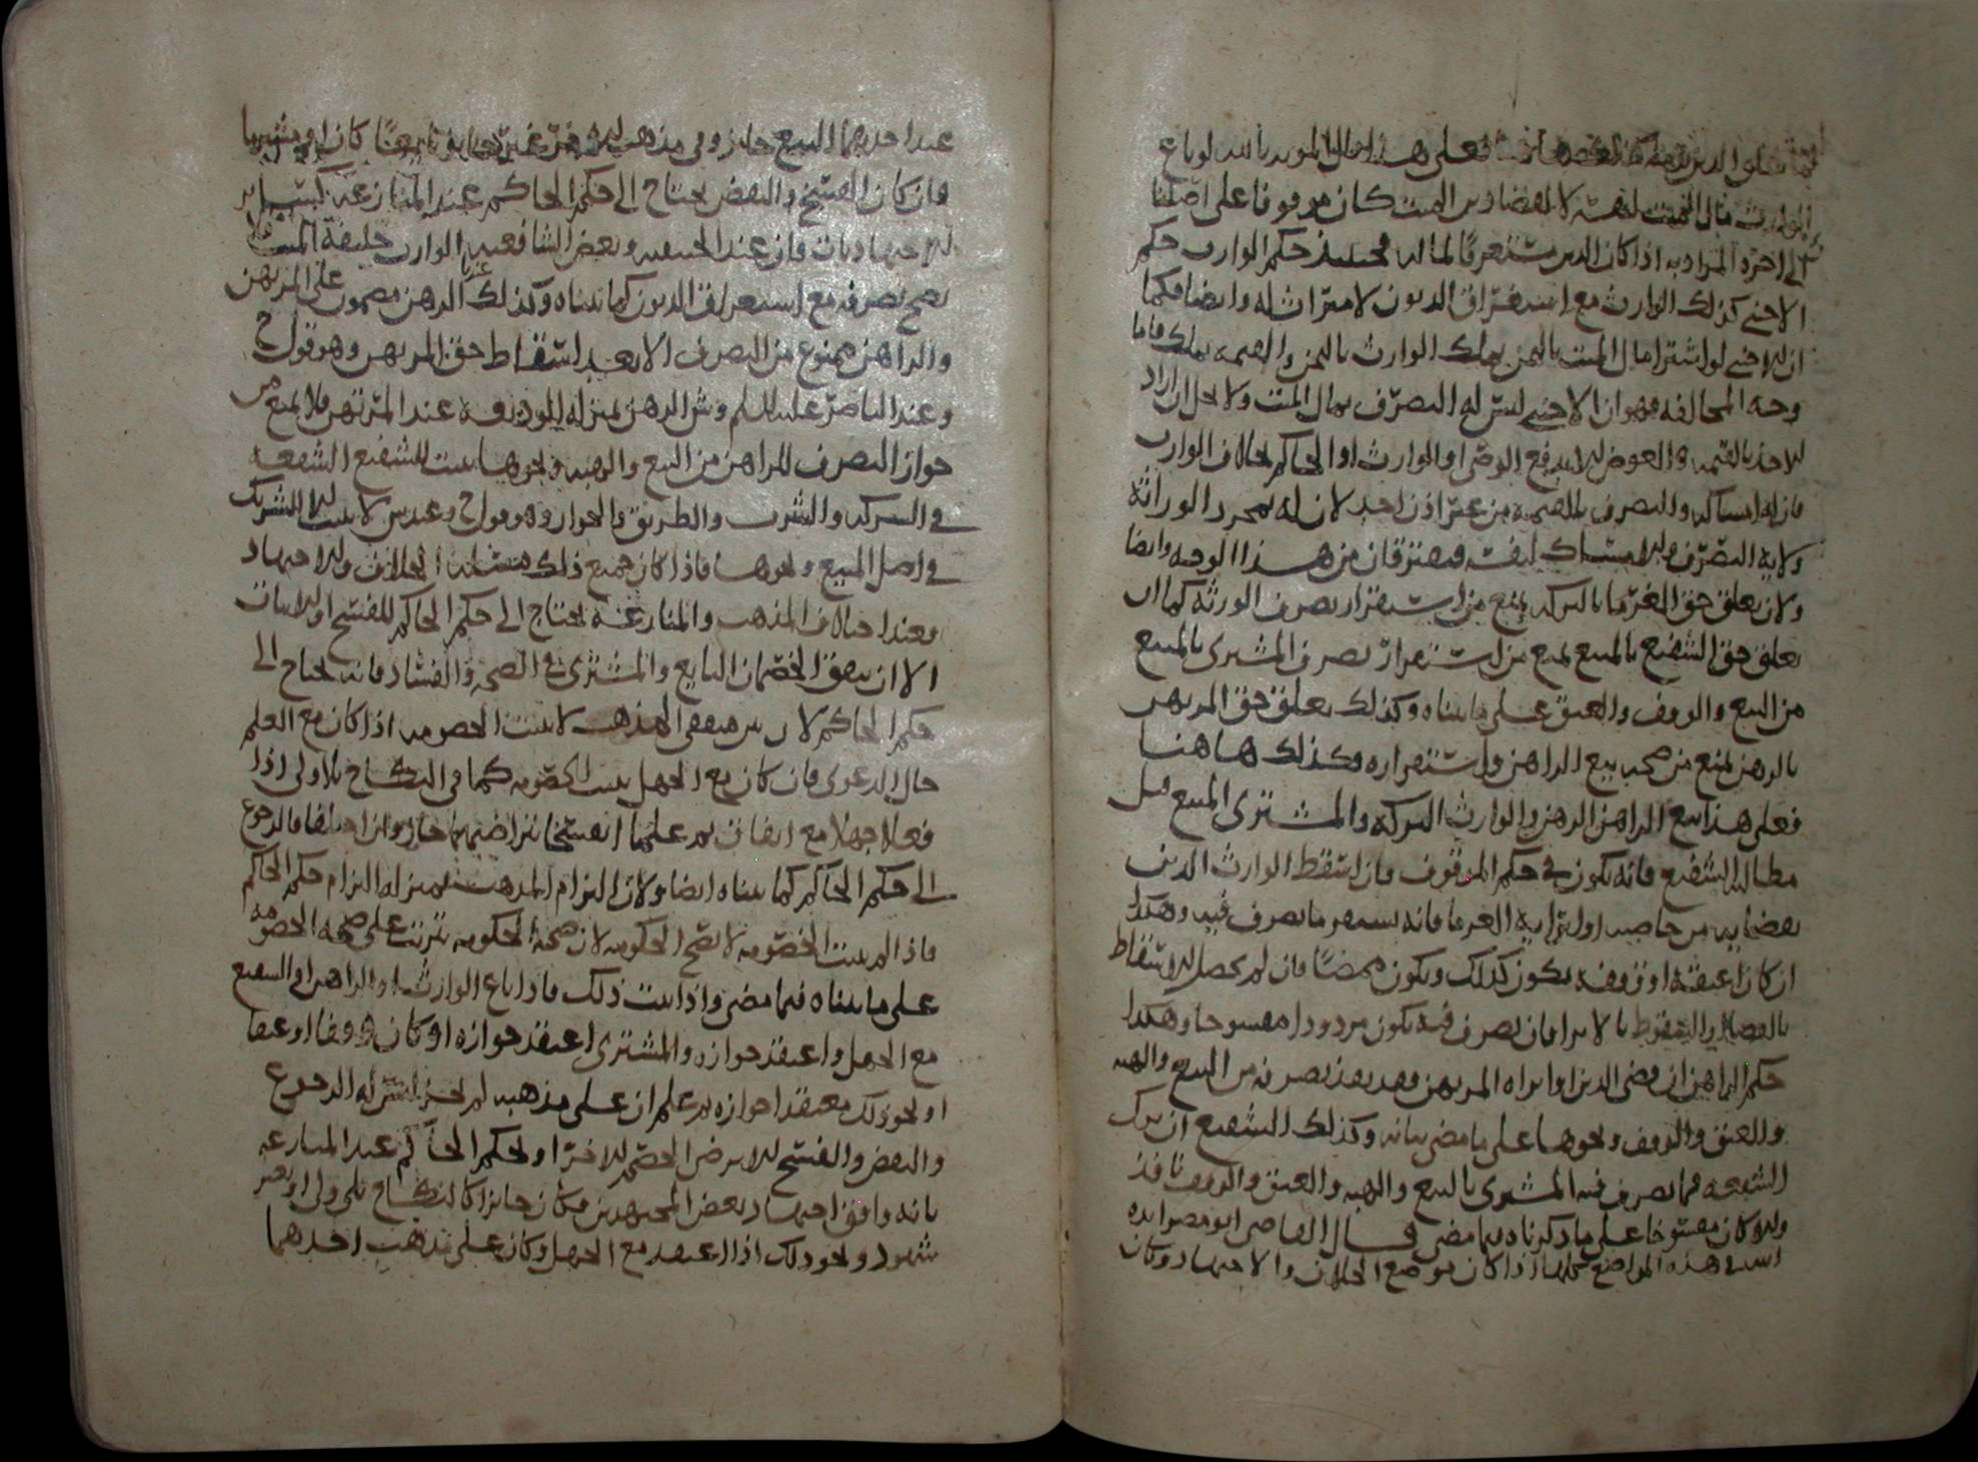 فعلى هذا قال المويد بالله لو باع
الوارث مال الميت لنفسه لا لقضا دين الميت كان موقوفا على اصلنا
الى اخره المراد به اذا كان الدين مستغرقا لماله فحينئذ حكم الوارث حكم
الاجنبي كذلك الوارث مع استغراق الديون لا ميراث له وايضا فكما
ان الاجنبي لو اشترا مال الميت بالثمن يملك الوارث بالثمن والقيمه يملك فاما
وجه المخالفه فهو ان الاجنبي ليس له التصرف بمال الميت ولا يحل ان اراد
الاخذ بالقيمه والعوض الا بدفع الوصي او الوارث او الحاكم بخلاف الوارث
فان له امساكه والتصرف بالقيمه من غير اذن احد لان له بمجرد الوراثة
ولاية التصرف والامساك لنفسه فيفترقان من هذا الوجه وايضا
ولان تعلق حق الغرما بالتركه يمنع من استقرار تصرف الورثه كما ان
تعلق حق الشفيع بالمبيع يمنع من استقرار تصرف المشترى بالمبيع
من البيع والوقف والعتق على ما بيناه وكذلك تعلق حق المرتهن
بالرهن يمنع من صحه بيع الراهن واستقراره وكذلك هاهنا
فعلى هذا بيع الراهن الرهن والوارث التركه والمشترى المبيع قبل
مطالبه الشفيع فانه يكون في حكم الموقوف فان اسقط الوارث الدين
بقضايه من خاصه او ابرايه الغرما فانه يستقر ما تصرف فيه وهكذا
ان كان اعتقه او وقفه يكون كذلك ويكون ممضا فان لم يحصل الاسقاط
بالقضا والسقوط بالابرا فان تصرف فيه يكون مردودا مفسوخا وهكذا
حكم الراهن ان قضى الدين او ابراه المرتهن وقد نفذ تصرفه من البيع والهبه
والعتق والوقف ونحوها على ما مضى بيانه وكذلك الشفيع ان ترك
الشفعه فما تصرف فيه المشترى بالبيع والهبه والعتق والوقف نافذ
والا كان مفسوخا على ما ذكرناه فيما مضى قال القاضي ابو مضر ايده
الله في هذه المواضع كلها اذا كان موضع الخلاف والاجتهاد وكان
عند احدهما البيع جايز وفي مذهب الاخر غير جايز بايعا كان او مشتريا
فان كان الفسخ والنقض يحتاج الى حكم الحاكم عند المنازعة كسبيل
الاجتهاديات فان عند الحنفيه وبعض الشافعيه الوارث خليفة الميت
يصح تصرفه مع استغراق الديون كما بيناه وكذلك الرهن مضمون على المرتهن
والراهن ممنوع من التصرف الا بعد اسقاط حق المرتهن وهو قول ح
وعند الناصر عليه السلم وش الرهن بمنزله الوديعه عند المرتهن فلا يمنع من
جواز التصرف للراهن من البيع والهبه ونحوها يثبت للشفيع الشفعه
في الشركه والشرب والطريق والجوار وهو قول ح وعند ش لا يثبت الا للشريك
في اصل المبيع ونحوها فاذا كان جميع ذلك مسئلة الخلاف والاجتهاد
فعند اختلاف المذهب والمنازعة يحتاج الى حكم الحاكم للفسخ او الاثبات
الا ان يتفق الخصمان البايع والمشترى في الصحه والفساد فانه يحتاج الى
حكم الحاكم لان بين متفقي المذهب لا يثبت الخصومه اذا كان مع العلم
حال الدعوى فان كان مع الجهل يثبت الخصومه كما في النكاح بلا ولى اذا
فعلا جهلا مع اتفاق ثم علما انفسخا بتراضيهما جاز وان اختلفا فالرجوع
الى حكم الحاكم كما بيناه ايضا ولان التزام المذهب بمنزله التزام حكم الحاكم
فاذا لم يثبت الخصومه لا تصح الحكومه لان صحة الحكومه يترتب على صحة الخصومه
على ما بيناه فيما مضى واذا ثبت ذلك فاذا باع الوارث او الراهن او الشفيع
مع الجهل واعتقد جوازه والمشترى اعتقد جوازه او كان وقفا او عتقا
او نحو ذلك معتقدا جوازه ثم علم ان على مذهبه لم يجز ليس له الرجوع
والنقض والفسخ الا برضى الخصم الاخر او بحكم الحاكم عند المنازعه
بانه وافق اجتهاد بعض المجتهدين فكان جايزا كالنكاح بلا ولى او بغير
شهود ونحو ذلك اذا اعتقد مع الجهل وكان على مذهب احدهما